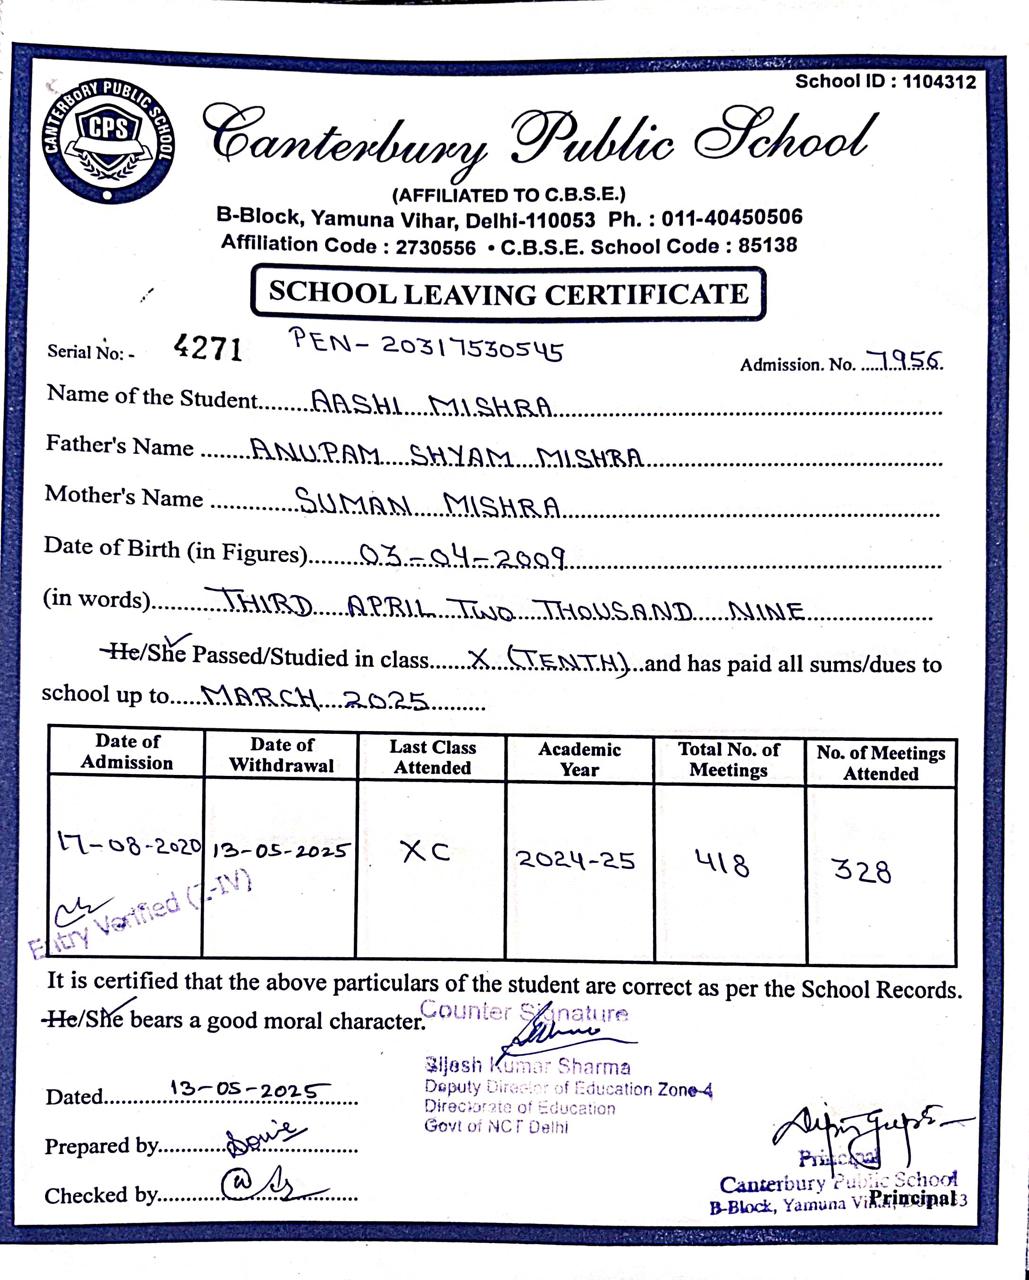 School ID : 1104312
CANTERBORY PUBLIC SCHOOL
CPS
Canterbury Public School
(AFFILIATED TO C.B.S.E.)
B-Block, Yamuna Vihar, Delhi-110053 Ph. : 011-40450506
Affiliation Code : 2730556 • C.B.S.E. School Code : 85138
SCHOOL LEAVING CERTIFICATE
Serial No: - 4271 PEN- 20317530545
Admission. No. 7956
Name of the Student AASHI MISHRA
Father's Name ANUPAM SHYAM MISHRA
Mother's Name SUMAN MISHRA
Date of Birth (in Figures) 03-04-2009
(in words) THIRD APRIL TWO THOUSAND NINE
He/She Passed/Studied in class X (TENTH) and has paid all sums/dues to
school up to MARCH 2025
Date of Admission Date of Withdrawal Last Class Attended Academic Year Total No. of Meetings No. of Meetings Attended
17-08-2020 13-05-2025 X C 2024-25 418 328
Entry Verified (I-IV)
It is certified that the above particulars of the student are correct as per the School Records.
He/She bears a good moral character.
Counter Signature
Kumar Sharma
Deputy Director of Education Zone-4
Directorate of Education
Govt of NCT Delhi
Dated 13-05-2025
Prepared by
Checked by
Principal
Canterbury Public School
B-Block, Yamuna
Principal